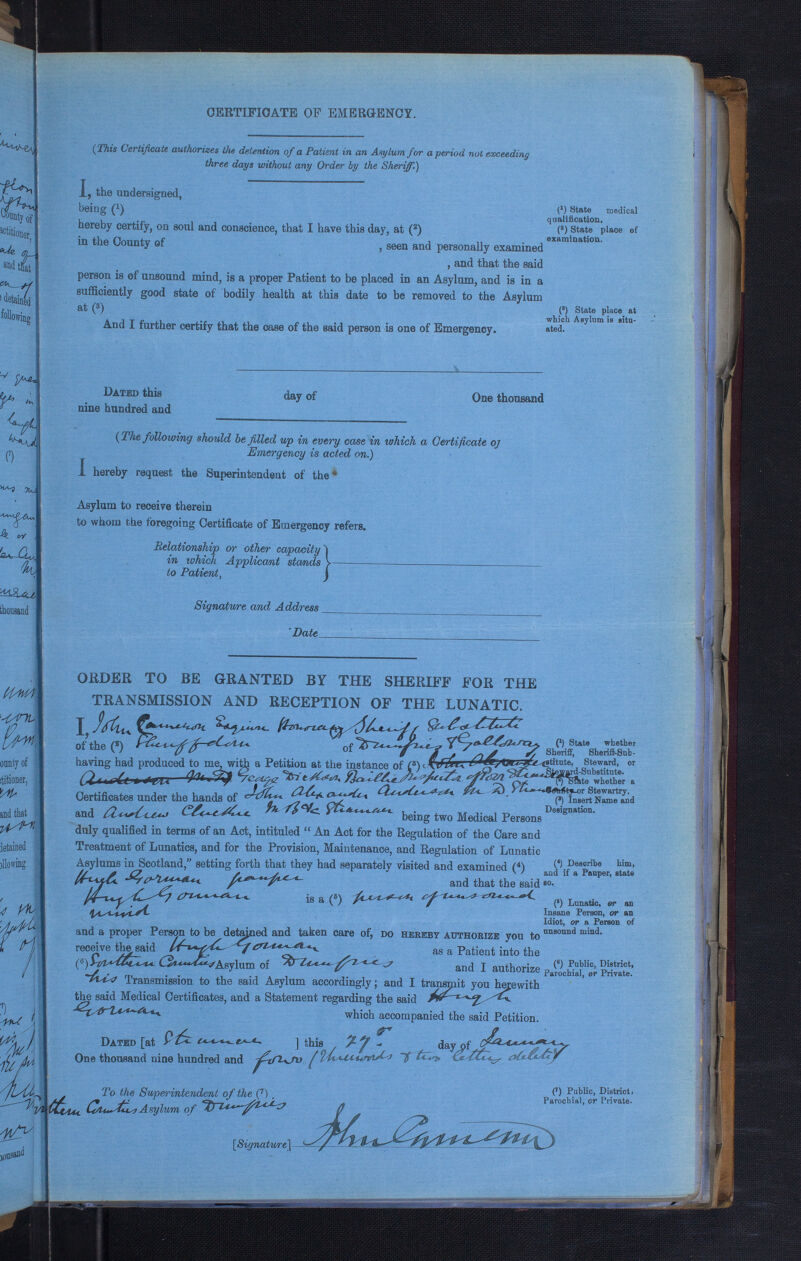 CERTIFICATE OF EMERGENCY.
(This Certificate authorizes the detention of a Patient in an Asylum for a period not exceeding
three days without any Order by the Sheriff.)
I, the undersigned,
being (¹)
hereby certify, on soul and conscience, that I have this day, at (²)
in the County of , seen and personally examined
, and that the said
person is of unsound mind, is a proper Patient to be placed in an Asylum, and is in a
sufficiently good state of bodily health at this date to be removed to the Asylum
at (³)
And I further certify that the case of the said person is one of Emergency.
(¹) State medical
qualification.
(²) State place of
examination.
(³) State place at
which Asylum is situ-
ated.
DATED this day of One thousand
nine hundred and
(The following should be filled up in every case in which a Certificate of
Emergency is acted on.)
I hereby request the Superintendent of the
Asylum to receive therein
to whom the foregoing Certificate of Emergency refers.
Relationship or other capacity
in which Applicant stands
to Patient,
Signature and Address
Date
ORDER TO BE GRANTED BY THE SHERIFF FOR THE
TRANSMISSION AND RECEPTION OF THE LUNATIC.
I, John Cameron Esquire Honorary Sheriff Substitute
of the (¹) Sheriffdom of Dumfries & Galloway
having had produced to me, with a Petition at the instance of (³) John Alexander
Anderson M.D. George Dickson Baillie Inspector of Poor Stranraer
Certificates under the hands of John Alexander Anderson M.D. Stranraer
and Andrew M B & Stranraer being two Medical Persons
duly qualified in terms of an Act, intituled " An Act for the Regulation of the Care and
Treatment of Lunatics, and for the Provision, Maintenance, and Regulation of Lunatic
Asylums in Scotland," setting forth that they had separately visited and examined (⁴)
Hugh Gorman pauper and that the said
Hugh Gorman is a (⁵) person of unsound
mind
and a proper Person to be detained and taken care of, DO HEREBY AUTHORIZE you to
receive the said Hugh Gorman as a Patient into the
(⁶) Southern Counties Asylum of Dumfries and I authorize
his Transmission to the said Asylum accordingly; and I transmit you herewith
the said Medical Certificates, and a Statement regarding the said Hugh
Gorman which accompanied the said Petition.
DATED [at Stranraer ] this 27th day of January
One thousand nine hundred and four (Three words & two letters deleted
To the Superintendent of the (⁷)
Southern Counties Asylum of Dumfries
[Signature] John Cameron
(¹) State whether
Sheriff, Sheriff-Sub-
stitute, Steward, or
Steward-Substitute.
(²) State whether a
County or Stewartry.
(³) Insert Name and
Designation.
(⁴) Describe him,
and if a Pauper, state
so.
(⁵) Lunatic, or an
Insane Person, or an
Idiot, or a Person of
unsound mind.
(⁶) Public, District,
Parochial, or Private.
(⁷) Public, District,
Parochial, or Private.